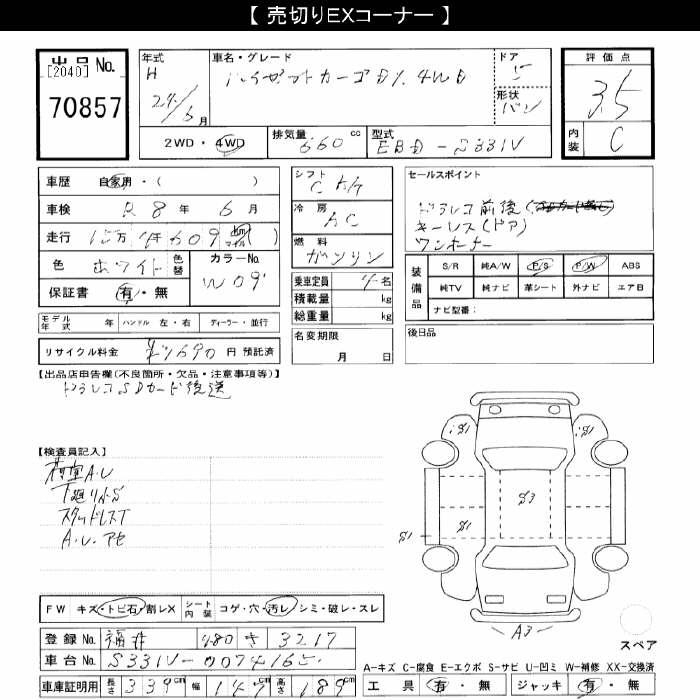 【 売切りEXコーナー 】
出品No.
[2040]
70857
年式
H
24/6月
車名・グレード
ハイゼットカーゴDX 4WD
ドア
5
形状
バン
評価点
3.5
内装
C
2WD・4WD
排気量 660 cc
型式 EBD-S331V
車歴 自家用・( )
車検 R8年6月
走行 609 km マイル ( )
色 ホワイト 色替
カラーNo. W09
保証書 有・無
シフト
冷房
AC
燃料
ガソリン
乗車定員 4名
積載量 kg
総重量 kg
セールスポイント
ドラレコ前後
キーレス(ドア)
ワンオーナー
装備品
S/R 純A/W P/S P/W ABS
純TV 純ナビ 革シート 外ナビ エアB
ナビ型番:
モデル年式 年 ハンドル 左・右 ディーラー・並行
リサイクル料金 ¥7690円 預託済
名変期限
月 日
後日品
【出品店申告欄(不良箇所・欠品・注意事項等)】
ドラレコSDカード後送
【検査員記入】
荷室A.U
下廻りS
スタッドレスT
A.U.アセ
S1
S1
S3
S1
S1
A3
スペア
FW キズ・トビ石・割レX
シート内装 コゲ・穴・汚レ・シミ・破レ・スレ
登録No. 福井 480 き 3217
車台No. S331V-0074165
車庫証明用 長さ 339cm 幅 147cm 高さ 189cm
A-キズ C-腐食 E-エクボ S-サビ U-凹ミ W-補修 XX-交換済
工具 有・無 ジャッキ 有・無